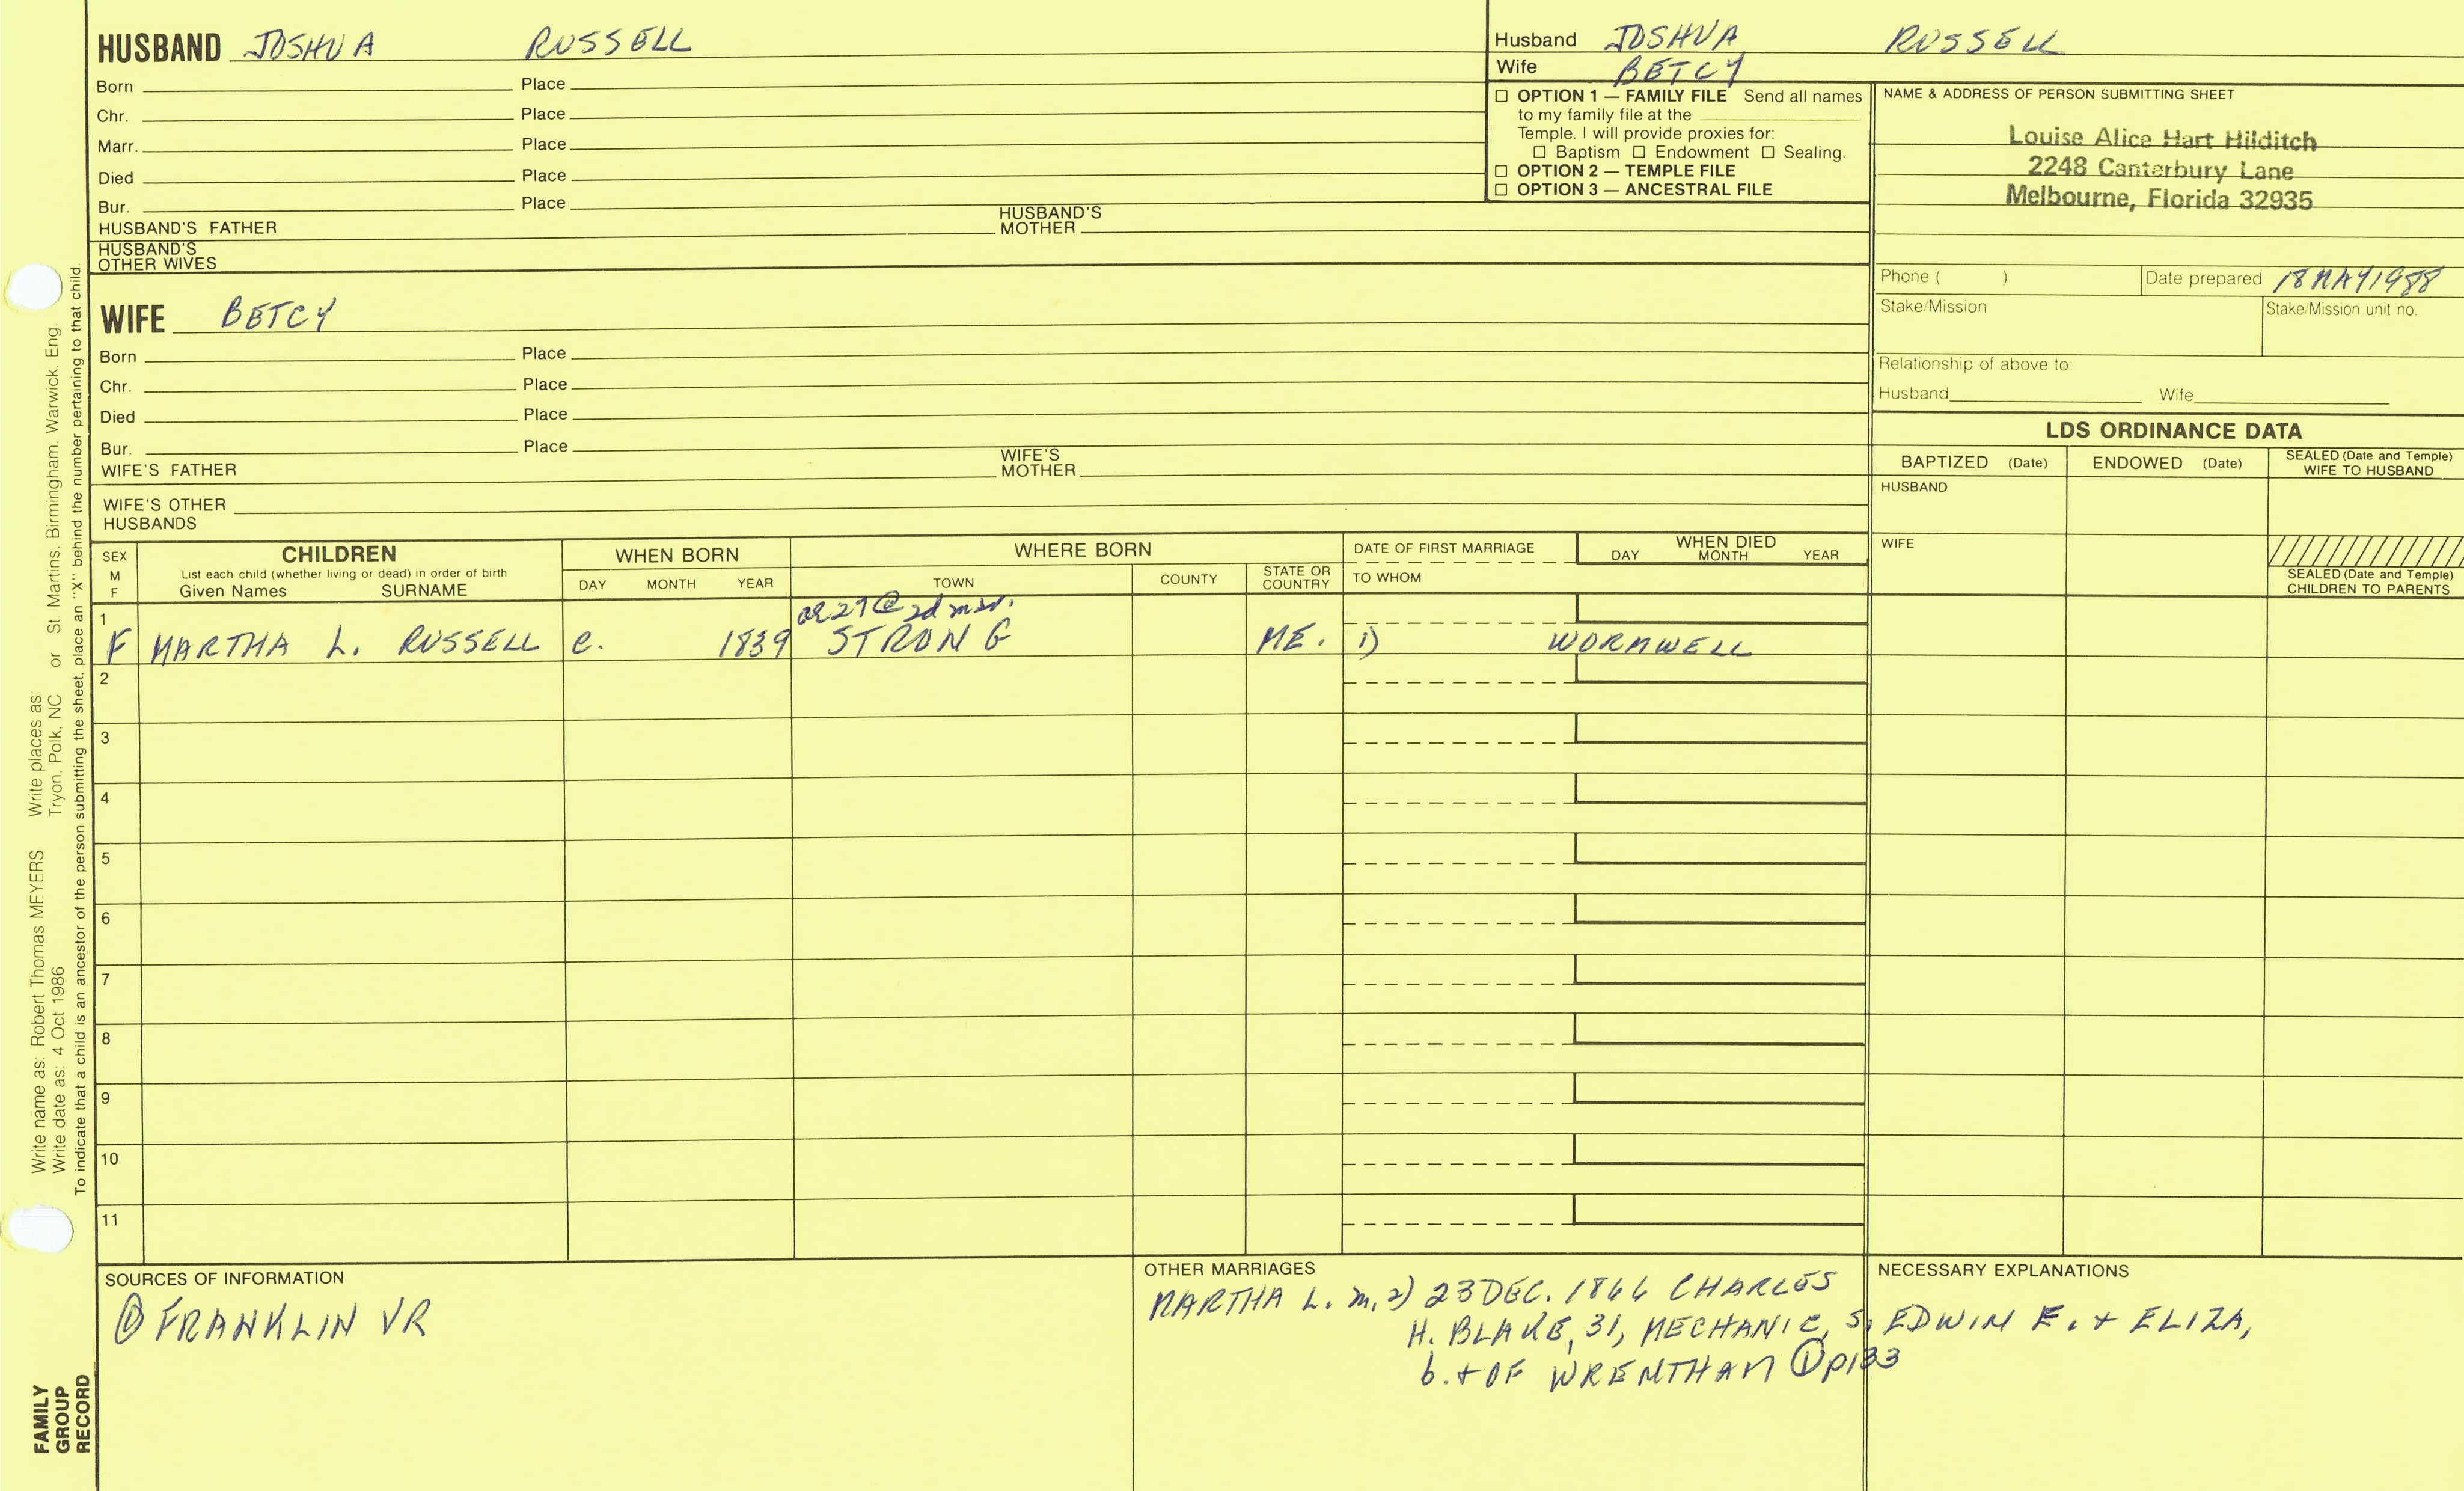 HUSBAND JOSHUA RUSSELL
Born Place
Chr. Place
Marr. Place
Died Place
Bur. Place
HUSBAND'S FATHER HUSBAND'S MOTHER
HUSBAND'S OTHER WIVES
WIFE BETCY
Born Place
Chr. Place
Died Place
Bur. Place
WIFE'S FATHER WIFE'S MOTHER
WIFE'S OTHER HUSBANDS
Husband JOSHUA RUSSELL
Wife BETCY
☐ OPTION 1 — FAMILY FILE Send all names
to my family file at the
Temple. I will provide proxies for:
☐ Baptism ☐ Endowment ☐ Sealing.
☐ OPTION 2 — TEMPLE FILE
☐ OPTION 3 — ANCESTRAL FILE
NAME & ADDRESS OF PERSON SUBMITTING SHEET
Louise Alice Hart Hilditch
2248 Canterbury Lane
Melbourne, Florida 32935
Phone ( ) Date prepared 18 MAY 1988
Stake/Mission Stake/Mission unit no.
Relationship of above to:
Husband Wife
LDS ORDINANCE DATA
BAPTIZED (Date) ENDOWED (Date) SEALED (Date and Temple) WIFE TO HUSBAND
HUSBAND
WIFE
SEALED (Date and Temple)
CHILDREN TO PARENTS
SEX M F
CHILDREN
List each child (whether living or dead) in order of birth
Given Names SURNAME
WHEN BORN
DAY MONTH YEAR
WHERE BORN
TOWN COUNTY STATE OR COUNTRY
DATE OF FIRST MARRIAGE
TO WHOM
WHEN DIED
DAY MONTH YEAR
27 @ 2d
1 F MARTHA L. RUSSELL c. 1839 STRONG ME. 1) WORMWELL
2
3
4
5
6
7
8
9
10
11
SOURCES OF INFORMATION
① FRANKLIN VR
OTHER MARRIAGES
MARTHA L. m. 2) 23 DEC. 1866 CHARLES
H. BLAKE, 31, MECHANIC, S. EDWIN E. + ELIZA,
b. + OF WRENTHAM ① p133
NECESSARY EXPLANATIONS
Write name as: Robert Thomas MEYERS Write places as:
Write date as: 4 Oct 1986 Tryon, Polk, NC or St. Martins, Birmingham, Warwick, Eng.
To indicate that a child is an ancestor of the person submitting the sheet, place an "X" behind the number pertaining to that child.
FAMILY
GROUP
RECORD